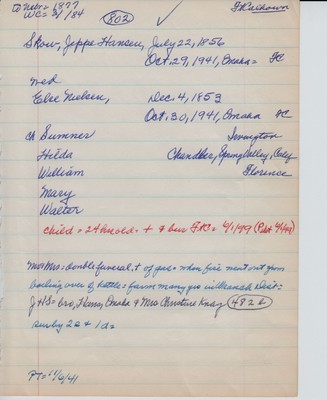 to Nebr = 1877
WC = 3/1/84
802
Ft Calhoun
Skow, Jeppe Hansen, July 22, 1856
Oct. 29, 1941, Omaha = FC
wed
Else Nielsen, Dec. 4, 1853
Oct. 30, 1941, Omaha FC
ch Sumner Irvington
Hilda Chandler, Spring Valley,
William Florence
Mary
Walter
child = 24 hr old = + & bur F.C. = 9/1/99 (Pilot 9/1/99)
Mr & Mrs = double funeral, + of gas when fire went out from
boiling over of kettle = farm many yrs in Dist =
J H S = bro, Hans, Omaha & Mrs Christine 482
surv by 2 s & 1 d =
PT = 11/6/41